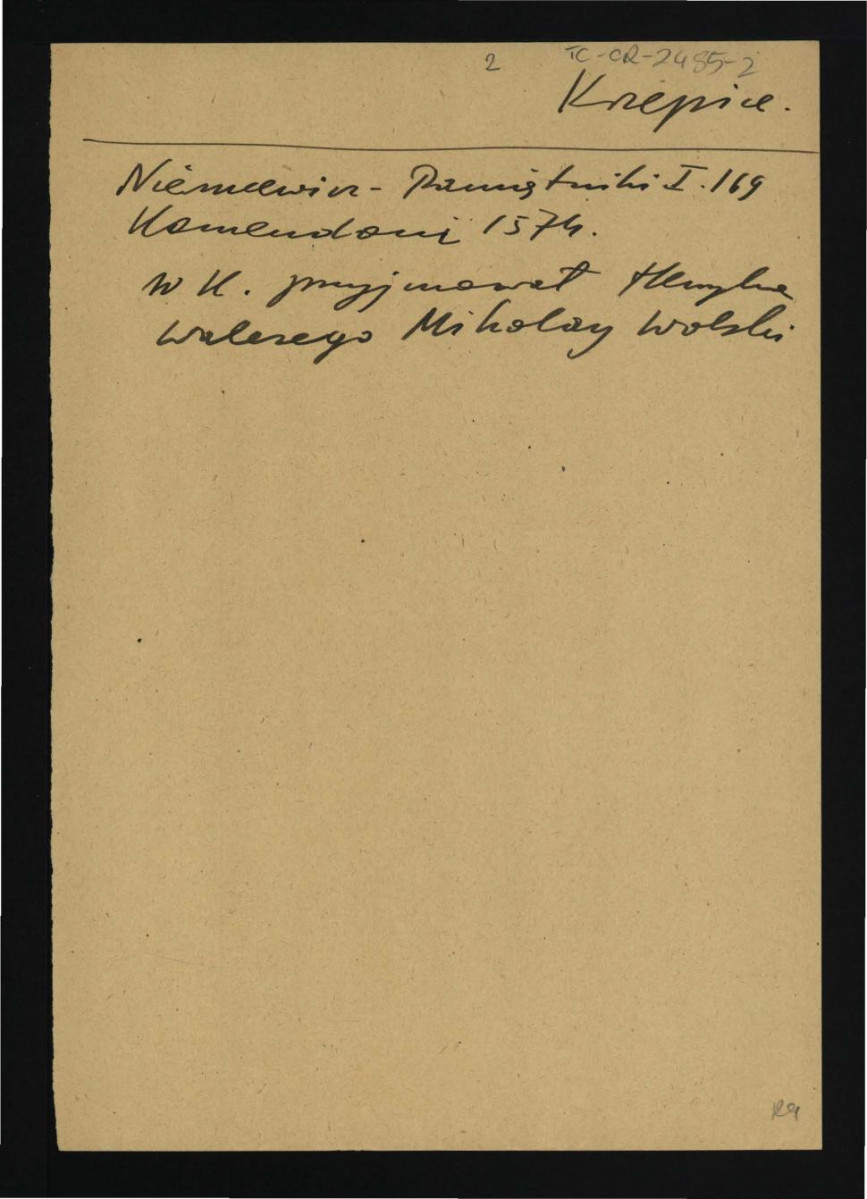 2 TC-CR-2485-2
Krzepice.
Niemcewicz - Pamiętniki I. 169
Komendoni 1574.
W K. przyjmował Henryka
Walezego Mikołay Wolski